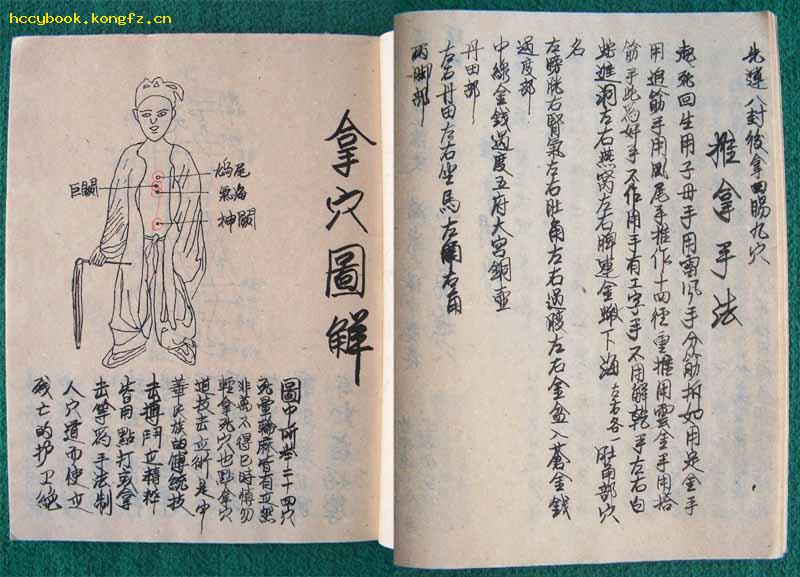 hccybook.kongfz.cn
先運八封後拿四腸九穴
推拿手法
起死回生用子母手用雲風手分筋拆如用是金手
用追筋手用鳳尾手推作十四徑重推用雲金手用搭
筋手此為好手不作用手有工字手不用解乾手左右白
蛇進洞左右燕窩左右脾蓮金蟾下海左右各一肚角部穴
名
左膀胱右腎氣左右肚角左右過腰左右金盆入蒼金錢
過度部
中線金錢過度五府大宮銅壺
丹田部
左右丹田左右坐馬左角右角
兩腳部
拿穴圖解
鳩尾
氣海
神闕
巨闕
圖中所點二十四穴
死暈輪麻皆有立然
非萬不得已時慎勿
輕拿死穴也點拿穴
道技擊立術是中
華民族的傳統技
擊搏鬥立精粹
皆用點打或拿
擊等為手法制
人穴道而使立
殘亡的护卫絕